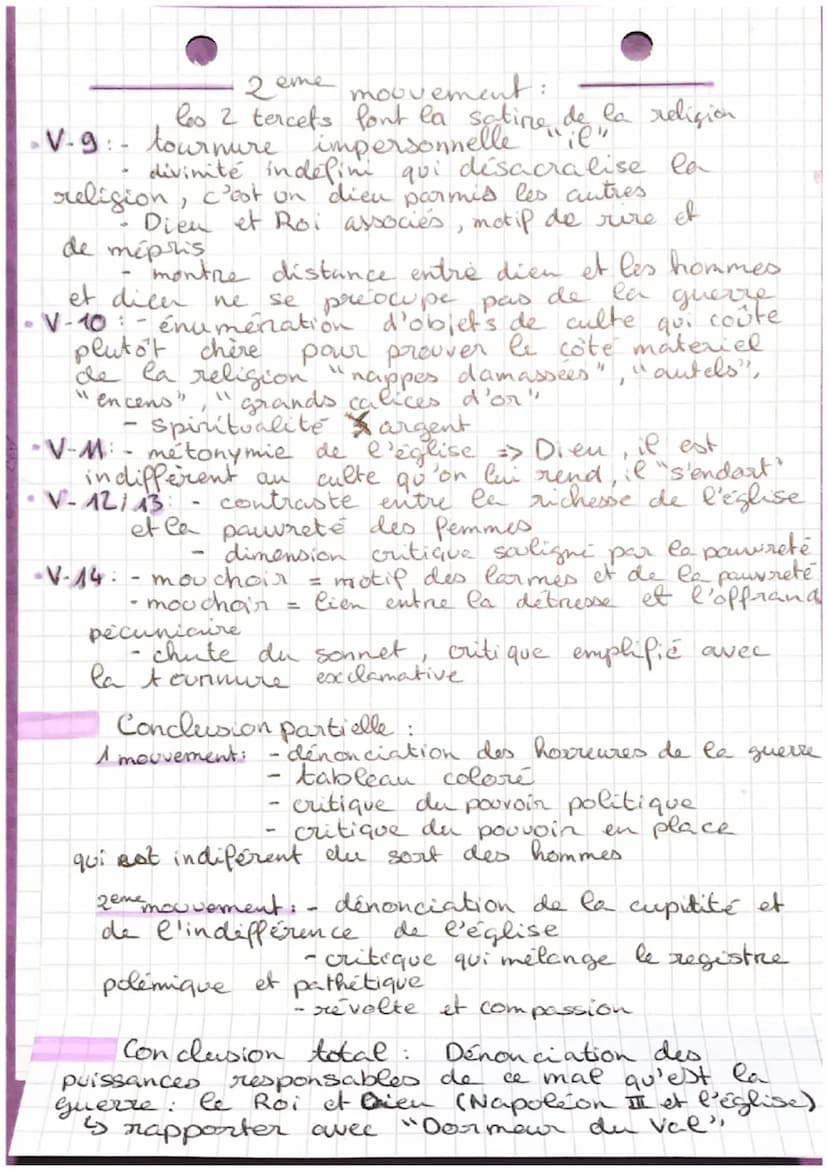 2eme mouvement :
les 2 tercets font la satire de la religion
• V-9 : - tournure impersonnelle "il"
- divinité indéfini qui désacralise la
religion, c'est un dieu parmis les autres
- Dieu et Roi associés, motif de rire et
de mépris
- montre distance entre dieu et les hommes
et dieu ne se préocupe pas de la guerre
• V-10 : - énumération d'objets de culte qui coûte
plutôt chère pour prouver le côté matériel
de la religion "nappes damassées", "autels",
"encens", "grands calices d'or"
- spiritualité argent
• V-11 : - métonymie de l'église => Dieu, il est
indifférent au culte qu'on lui rend, il "s'endort"
• V-12/13 : - contraste entre la richesse de l'église
et la pauvreté des femmes
- dimension critique souligné par la pauvreté
• V-14 : - mouchoir = motif des larmes et de la pauvreté
- mouchoir = lien entre la détresse et l'offrand
pécuniaire
- chute du sonnet, critique emplifié avec
la tournure exclamative
Conclusion partielle :
1 mouvement : - dénonciation des horreures de la guerre
- tableau coloré
- critique du pouvoir politique
- critique du pouvoir en place
qui est indiférent du sort des hommes
2eme mouvement : - dénonciation de la cupitité et
de l'indifférence de l'église
- critique qui mélange le registre
polémique et pathétique
- révolte et compassion
Conclusion total : Dénonciation des
puissances responsables de ce mal qu'est la
guerre : le Roi et Dieu (Napoléon III et l'église)
↳ rapporter avec "Dormeur du Val"